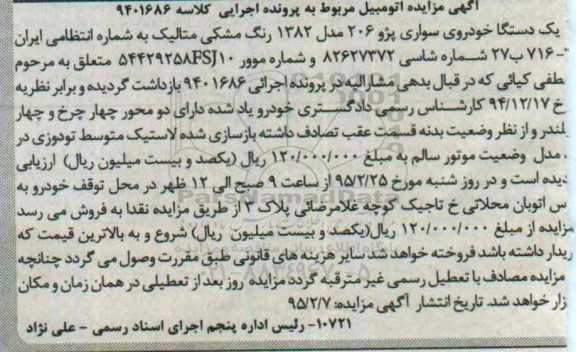 آگهی مزایده اتومبیل مربوط به پرونده اجرایی کلاسه ۹۴۰۱۶۸۶
یک دستگا خودروی سواری پژو ۲۰۶ مدل ۱۳۸۲ رنگ مشکی متالیک به شماره انتظامی ایران
-۷۱۶ب۲۷ شماره شاسی ۸۲۶۲۷۳۷۲ و شماره موور ۵۴۴۲۹۲۵۸FSJ۱۰ متعلق به مرحوم
طفی کیائی که در قبال بدهی مشارالیه در پرونده اجرائی ۹۴۰۱۶۸۶ بازداشت گردیده و برابر نظریه
رخ ۹۴/۱۲/۱۷ کارشناس رسمی دادگستری خودرو یاد شده دارای دو محور چهار چرخ و چهار
یلندر و از نظر وضعیت بدنه قسمت عقب تصادف داشته بازسازی شده لاستیک متوسط تودوزی در
مدل وضعیت موتور سالم به مبلغ ۱۲۰/۰۰۰/۰۰۰ ریال (یکصد و بیست میلیون ریال) ارزیابی
دیده است و در روز شنبه مورخ ۹۵/۲/۲۵ از ساعت ۹ صبح الی ۱۲ ظهر در محل توقف خودرو به
س اتوبان محلاتی خ تاجیک کوچه غلامرضائی پلاک ۲ از طریق مزایده نقدا به فروش می رسد
مزایده از مبلغ ۱۲۰/۰۰۰/۰۰۰ ریال(یکصد و بیست میلیون ریال) شروع و به بالاترین قیمت که
ریدار داشته باشد فروخته خواهد شد سایر هزینه های قانونی طبق مقررت وصول می گردد چنانچه
مزایده مصادف با تعطیل رسمی غیر مترقبه گردد مزایده روز بعد از تعطیلی در همان زمان و مکان
زار خواهد شد. تاریخ انتشار آگهی مزایده: ۹۵/۲/۷
۱۰۷۲۱- رئیس اداره پنجم اجرای اسناد رسمی - علی نژاد
ParsNamadData